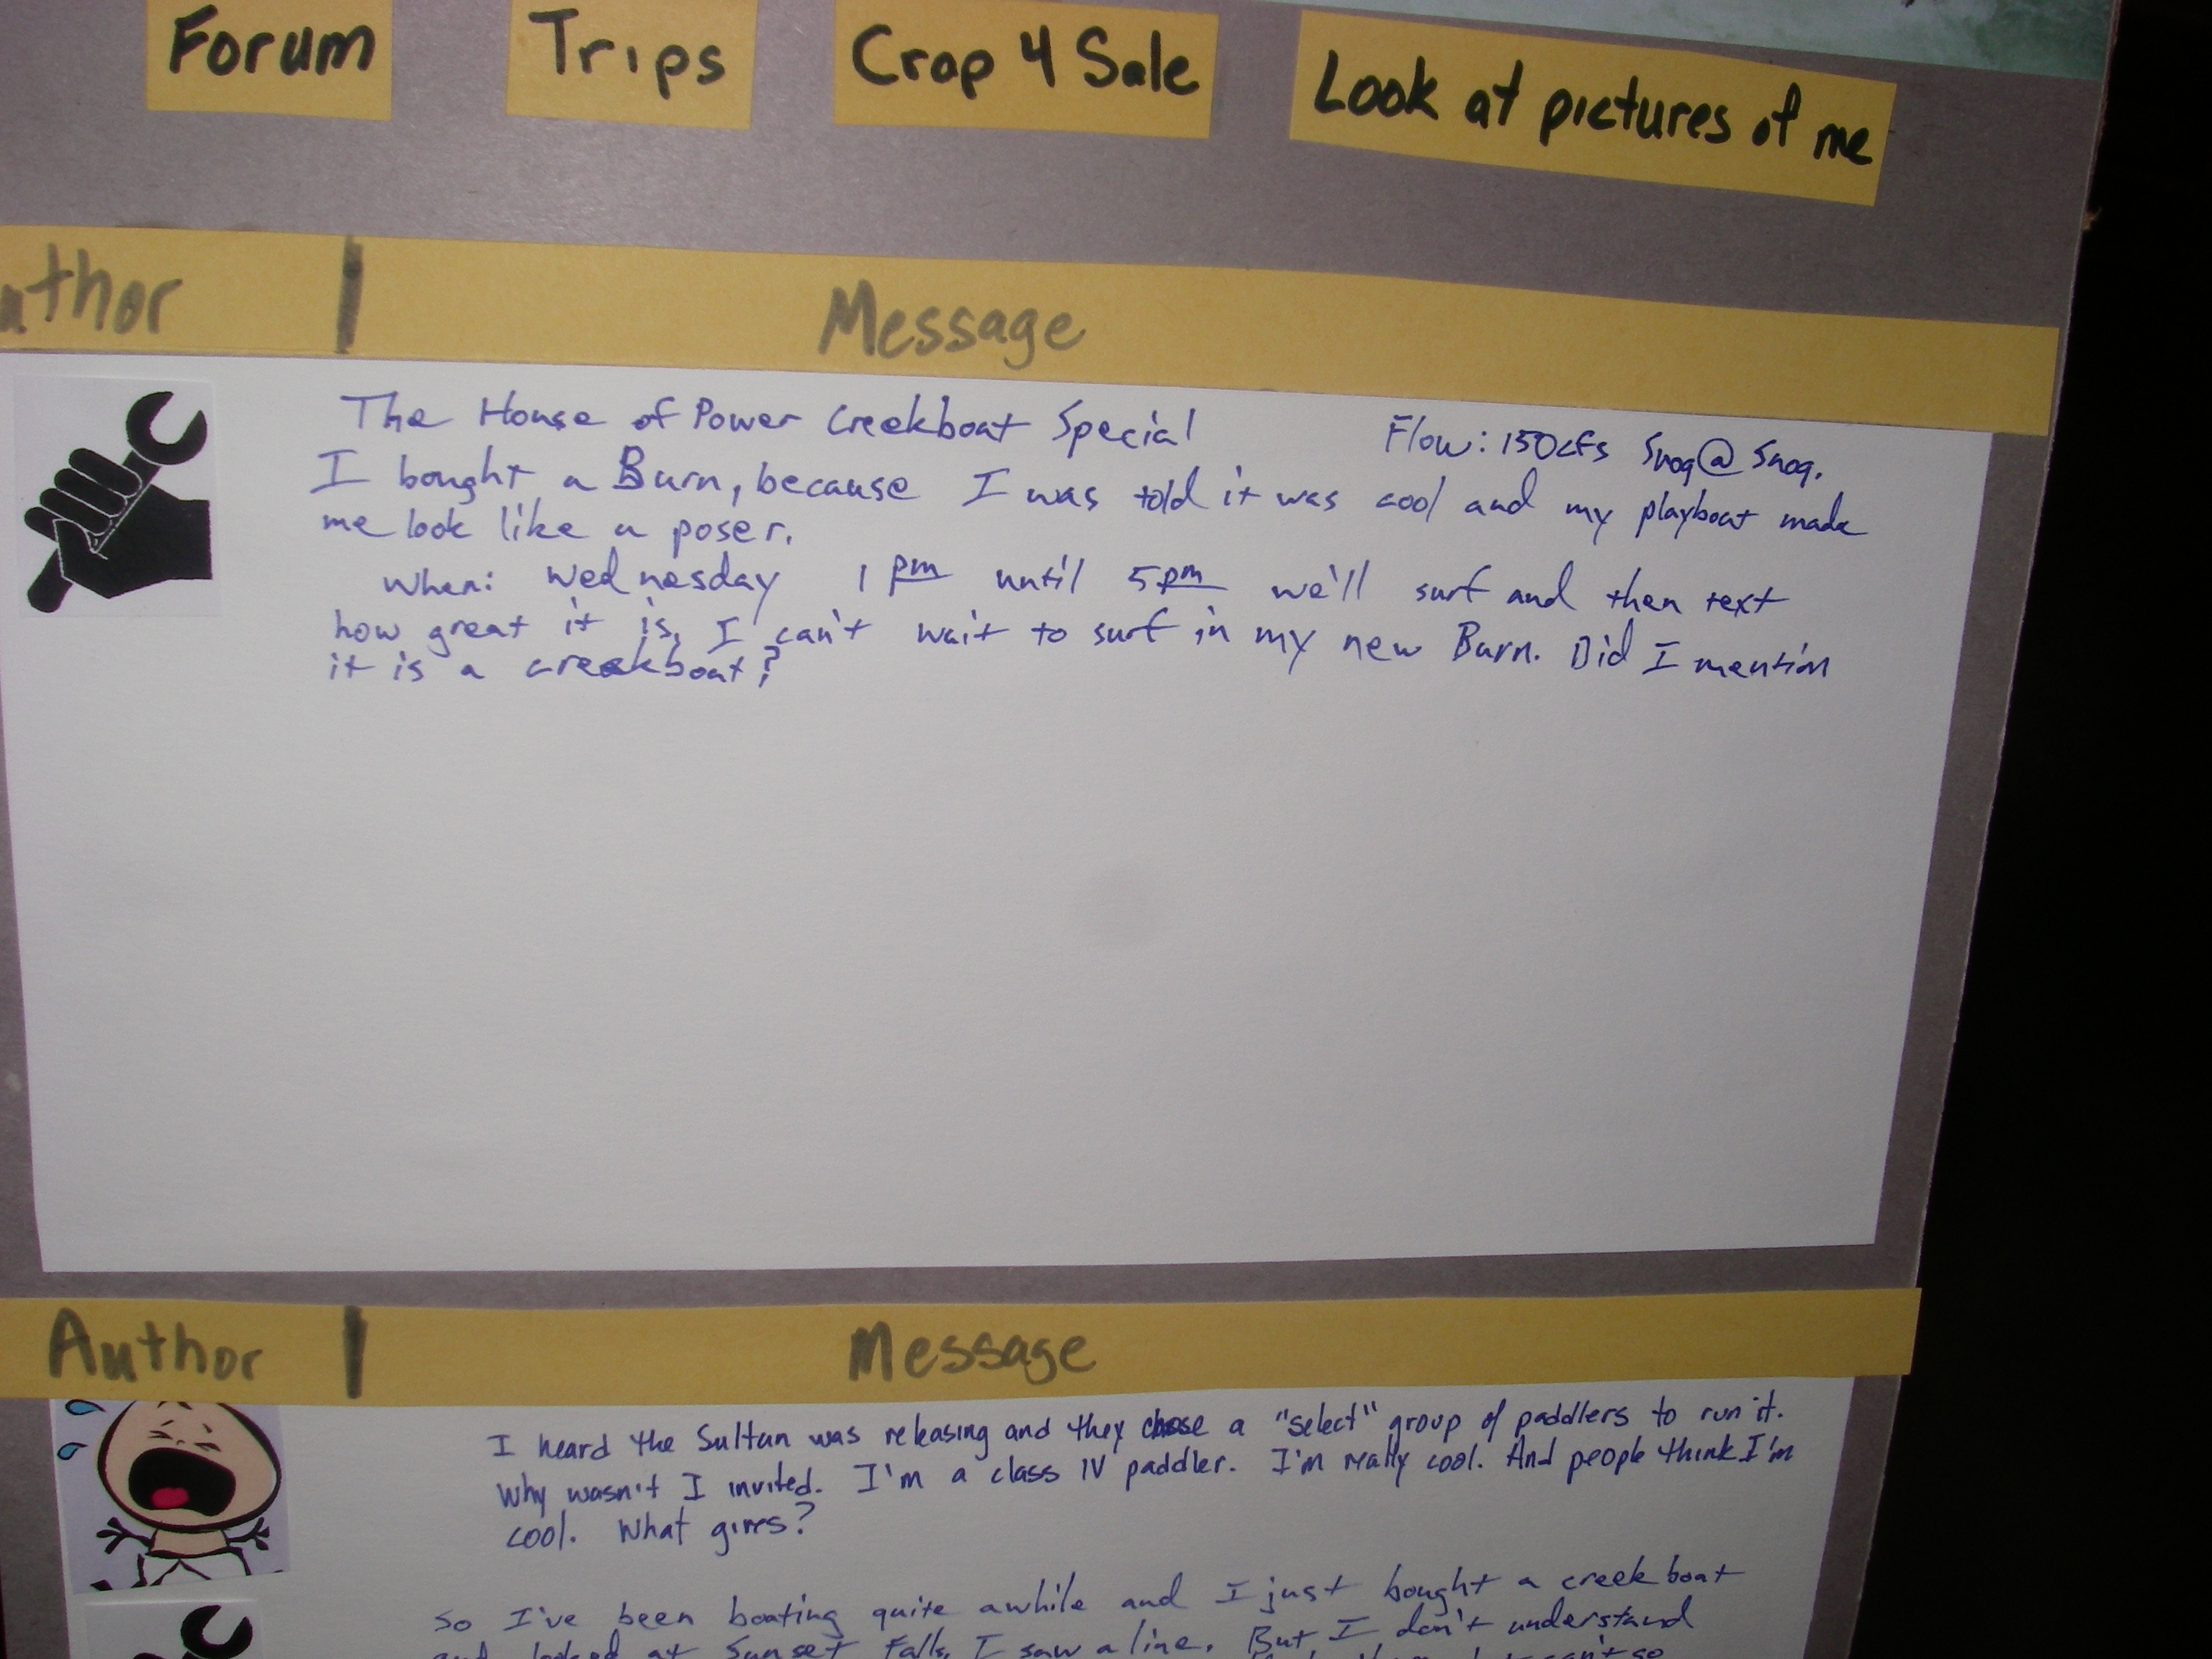 Forum Trips Crap 4 Sale Look at pictures of me
uthor | Message
The House of Power Creekboat Special Flow: 150cfs Snoq@Snoq.
I bought a Burn, because I was told it was cool and my playboat made
me look like a poser.
When: Wednesday 1pm until 5pm we'll surf and then text
how great it is, I can't wait to surf in my new Burn. Did I mention
it is a creekboat?
Author | Message
I heard the Sultan was releasing and they chose a "select" group of paddlers to run it.
Why wasn't I invited. I'm a class IV paddler. I'm really cool. And people think I'm
cool. What gives?
So I've been boating quite awhile and I just bought a creek boat
and looked at Sunset Falls, I saw a line. But I don't understand
can't so